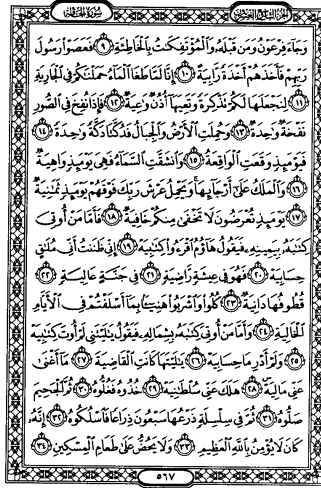 الجزء التاسع والعشرون سورة الحاقة
وَجَآءَ فِرْعَوْنُ وَمَن قَبْلَهُۥ وَٱلْمُؤْتَفِكَٰتُ بِٱلْخَاطِئَةِ ٩ فَعَصَوْا۟ رَسُولَ
رَبِّهِمْ فَأَخَذَهُمْ أَخْذَةً رَّابِيَةً ١٠ إِنَّا لَمَّا طَغَا ٱلْمَآءُ حَمَلْنَٰكُمْ فِى ٱلْجَارِيَةِ
١١ لِنَجْعَلَهَا لَكُمْ تَذْكِرَةً وَتَعِيَهَآ أُذُنٌ وَٰعِيَةٌ ١٢ فَإِذَا نُفِخَ فِى ٱلصُّورِ
نَفْخَةٌ وَٰحِدَةٌ ١٣ وَحُمِلَتِ ٱلْأَرْضُ وَٱلْجِبَالُ فَدُكَّتَا دَكَّةً وَٰحِدَةً ١٤
فَيَوْمَئِذٍ وَقَعَتِ ٱلْوَاقِعَةُ ١٥ وَٱنشَقَّتِ ٱلسَّمَآءُ فَهِىَ يَوْمَئِذٍ وَاهِيَةٌ
١٦ وَٱلْمَلَكُ عَلَىٰٓ أَرْجَآئِهَا وَيَحْمِلُ عَرْشَ رَبِّكَ فَوْقَهُمْ يَوْمَئِذٍ ثَمَٰنِيَةٌ
١٧ يَوْمَئِذٍ تُعْرَضُونَ لَا تَخْفَىٰ مِنكُمْ خَافِيَةٌ ١٨ فَأَمَّا مَنْ أُوتِىَ
كِتَٰبَهُۥ بِيَمِينِهِۦ فَيَقُولُ هَآؤُمُ ٱقْرَءُوا۟ كِتَٰبِيَهْ ١٩ إِنِّى ظَنَنتُ أَنِّى مُلَٰقٍ
حِسَابِيَهْ ٢٠ فَهُوَ فِى عِيشَةٍ رَّاضِيَةٍ ٢١ فِى جَنَّةٍ عَالِيَةٍ ٢٢
قُطُوفُهَا دَانِيَةٌ ٢٣ كُلُوا۟ وَٱشْرَبُوا۟ هَنِيٓـًٔۢا بِمَآ أَسْلَفْتُمْ فِى ٱلْأَيَّامِ
ٱلْخَالِيَةِ ٢٤ وَأَمَّا مَنْ أُوتِىَ كِتَٰبَهُۥ بِشِمَالِهِۦ فَيَقُولُ يَٰلَيْتَنِى لَمْ أُوتَ كِتَٰبِيَهْ
٢٥ وَلَمْ أَدْرِ مَا حِسَابِيَهْ ٢٦ يَٰلَيْتَهَا كَانَتِ ٱلْقَاضِيَةَ ٢٧ مَآ أَغْنَىٰ
عَنِّى مَالِيَهْ ٢٨ هَلَكَ عَنِّى سُلْطَٰنِيَهْ ٢٩ خُذُوهُ فَغُلُّوهُ ٣٠ ثُمَّ ٱلْجَحِيمَ
صَلُّوهُ ٣١ ثُمَّ فِى سِلْسِلَةٍ ذَرْعُهَا سَبْعُونَ ذِرَاعًا فَٱسْلُكُوهُ ٣٢ إِنَّهُۥ
كَانَ لَا يُؤْمِنُ بِٱللَّهِ ٱلْعَظِيمِ ٣٣ وَلَا يَحُضُّ عَلَىٰ طَعَامِ ٱلْمِسْكِينِ ٣٤
٥٦٧